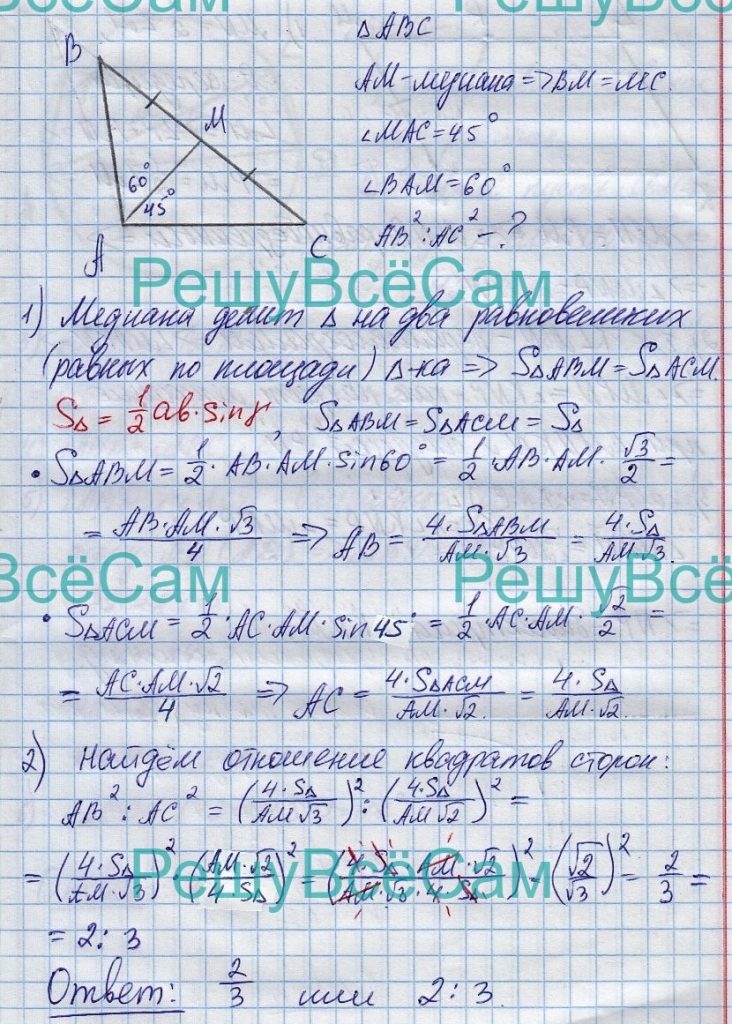 РешуВсёСам РешуВсёСам
B
M
60°
45°
A
C
△ABC
AM-медиана => BM=MC.
∠MAC=45°
∠BAM=60°
AB²:AC² - ?
РешуВсёСам
1) Медиана делит △ на два равновеликих
(равных по площади) △-ка => S△ABM=S△ACM.
S△ = 1/2 ab·sinγ, S△ABM=S△ACM=S△
• S△ABM = 1/2 · AB·AM·sin60° = 1/2 · AB·AM · √3/2 =
= AB·AM·√3/4 => AB = 4·S△ABM/AM·√3 = 4·S△/AM√3.
ВсёСам РешуВсё
• S△ACM = 1/2 · AC·AM·sin45° = 1/2 · AC·AM · √2/2 =
= AC·AM·√2/4 => AC = 4·S△ACM/AM·√2. = 4·S△/AM·√2.
2) Найдём отношение квадратов сторон:
AB² : AC² = (4·S△/AM√3)² : (4·S△/AM√2)² =
= (4·S△/AM·√3)² · (AM·√2/4S△)² = (4·S△·AM·√2/AM·√3·4·S△)² = (√2/√3)² = 2/3 =
РешуВсёСам
= 2:3
Ответ: 2/3 или 2:3.